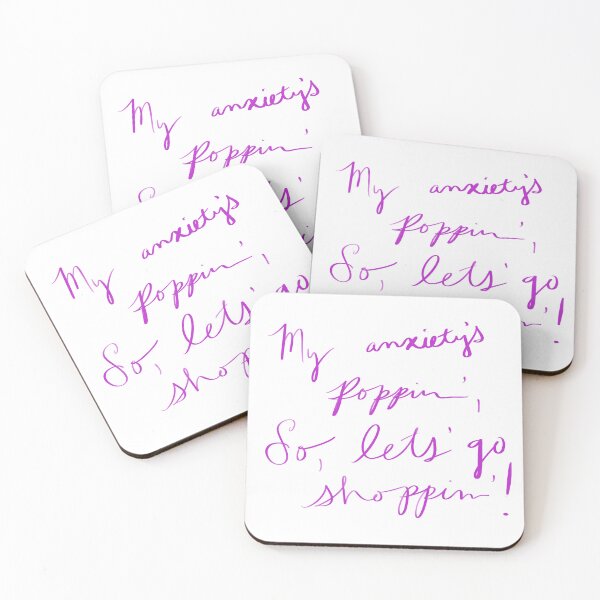 My anxiety's
Poppin'
My anxiety's
Poppin',
So, lets' go
My anxiety's
Poppin',
So, lets' go
My anxiety's
Poppin',
So, lets' go
shoppin'!